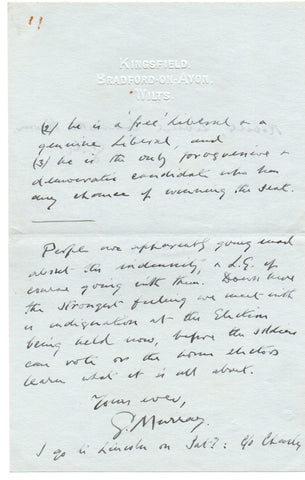 KINGSFIELD,
BRADFORD-ON-AVON,
WILTS.
(2) he is a 'free' Liberal & a
genuine Liberal, and
(3) he is the only progressive &
democratic candidate who has
any chance of winning the seat.
People are apparently going mad
about this indemnity, & L.G. of
course going with them. Down here
the strongest feeling we meet with
is indignation at the Election
being held now, before the soldiers
can vote or the women electors
learn what it is all about.
Yours ever,
G. Murray
I go to Lincoln on Sat?: c/o